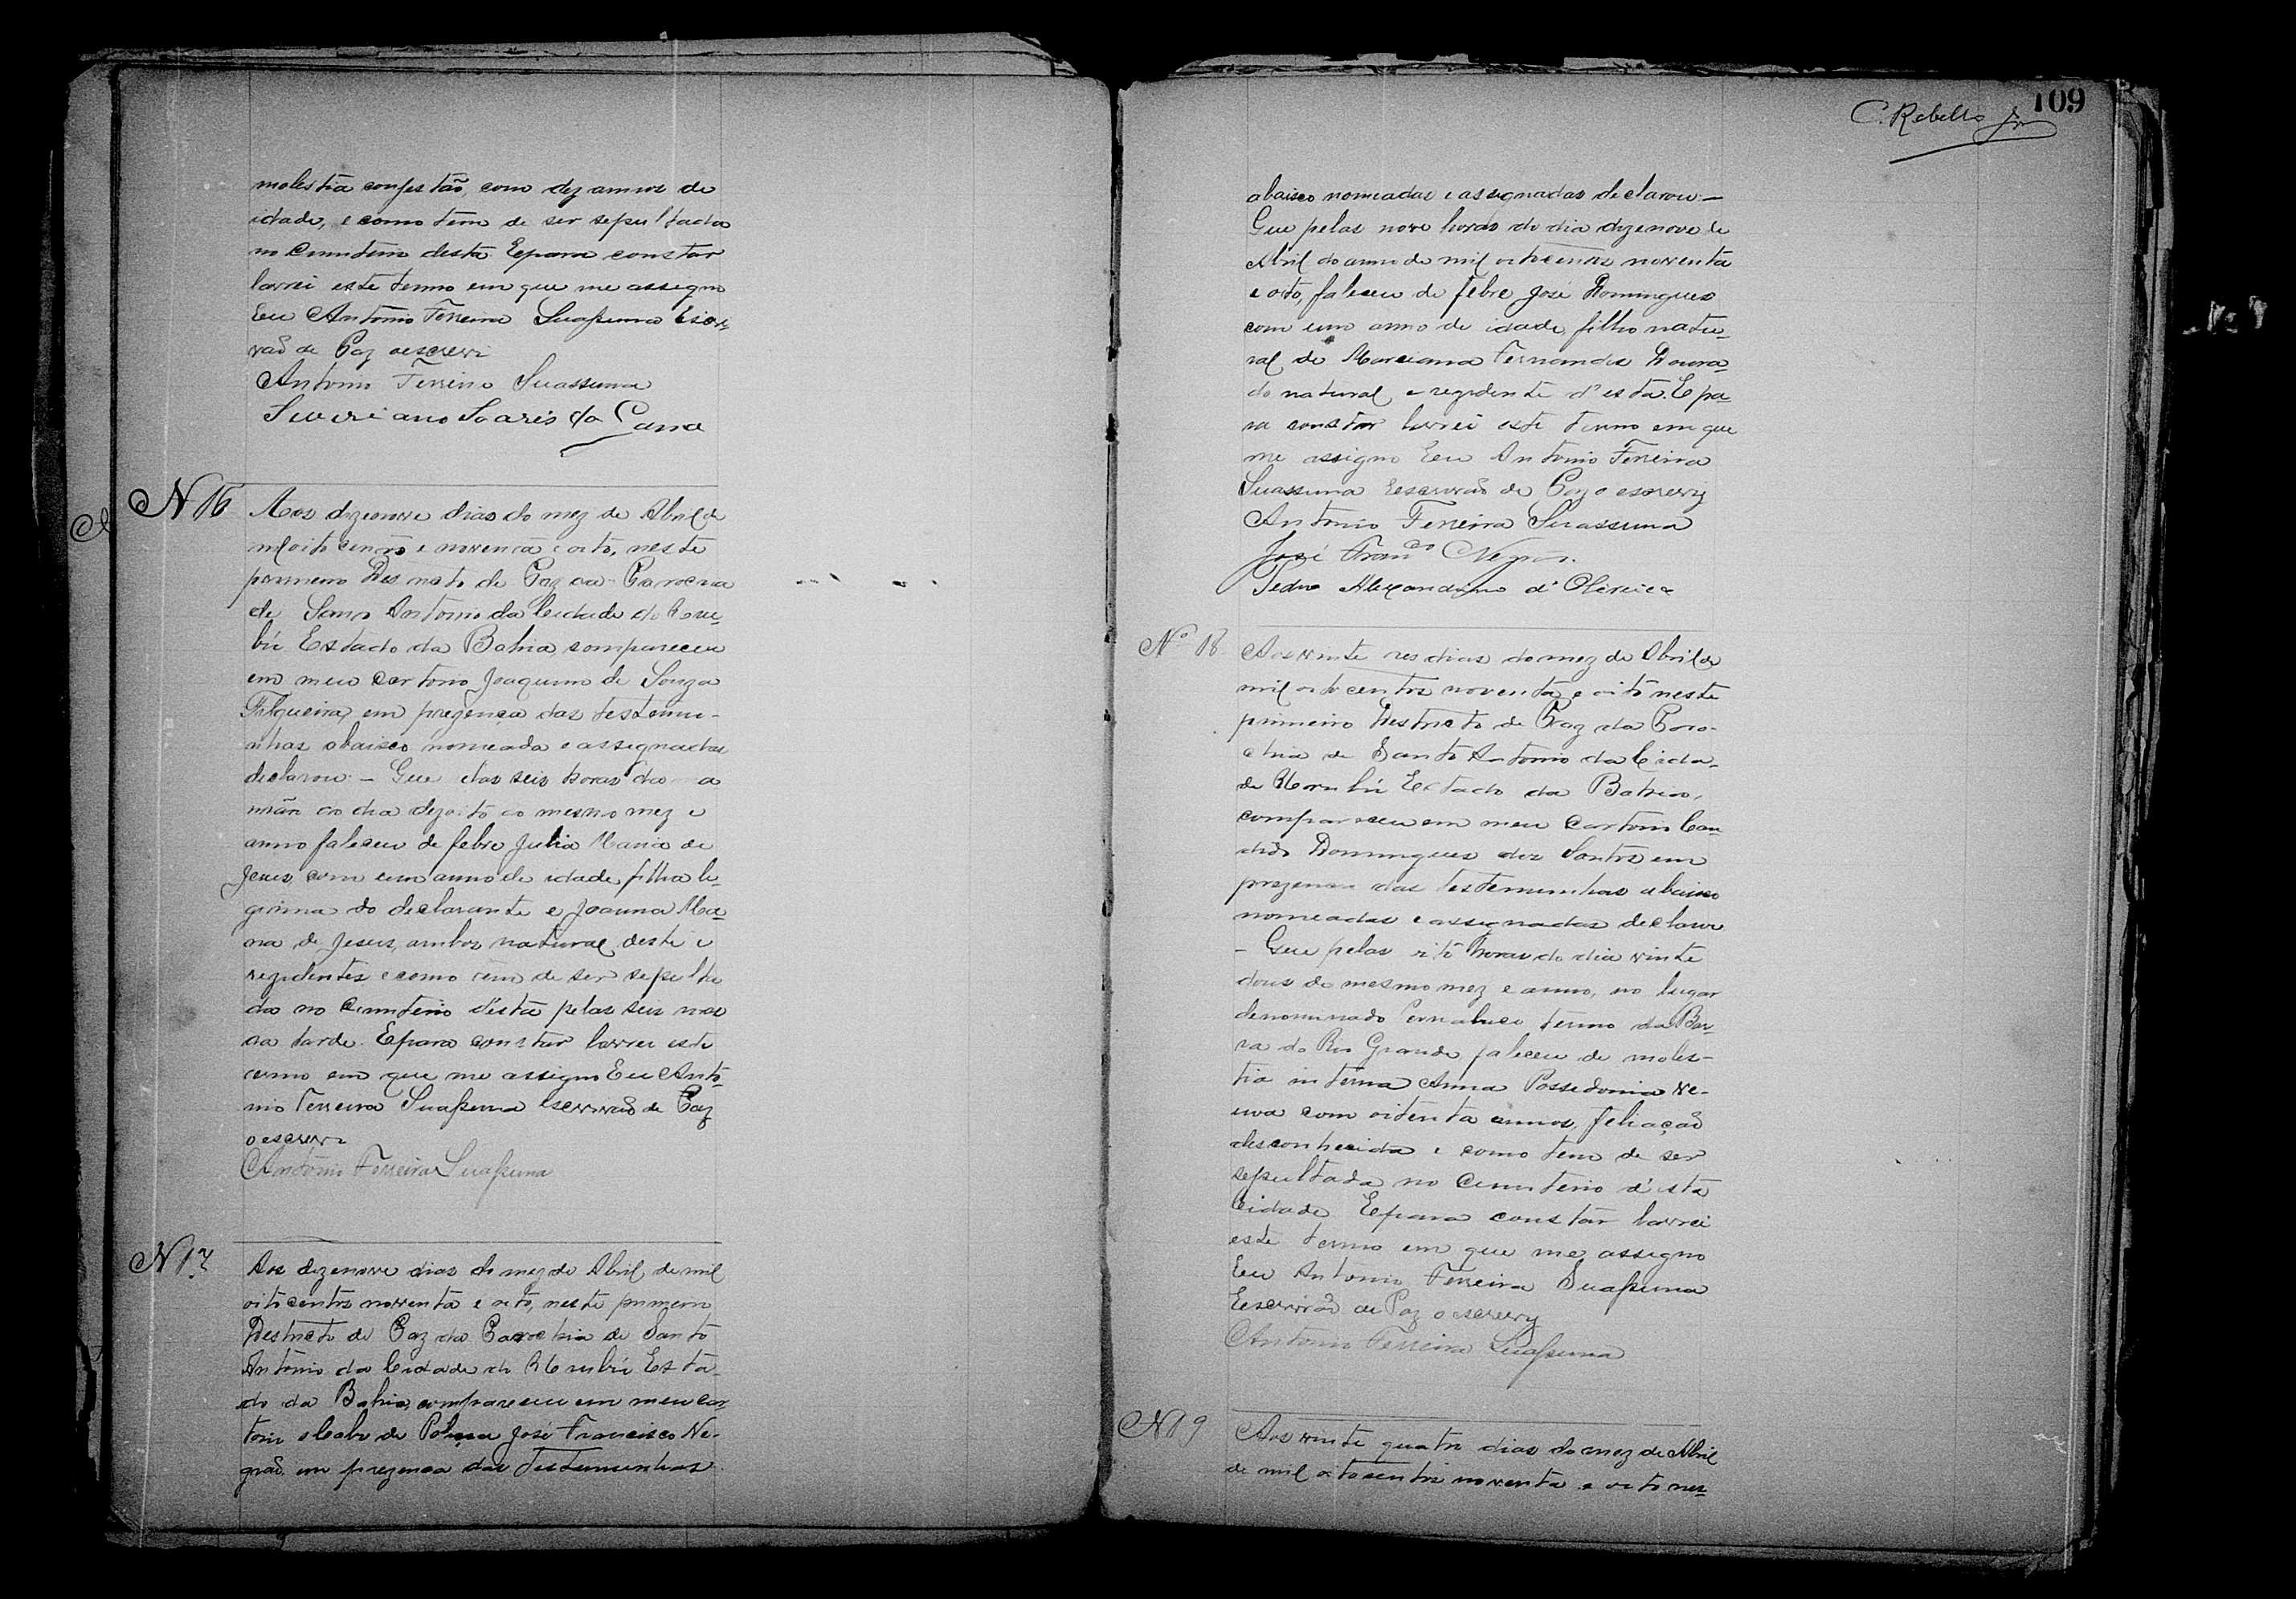 molestia congestão, com dez annos de
idade, e como tem de ser sepultado
no Cimiterio desta. Epara constar
lavrei este termo em que me assigno
Eeu Antonio Ferreira Suassuna Escri
vaõ de Paz oescrevi
Antonio Ferreira Suassuna
Siveriano Soares da Gama
N 16
Aos dezenove dias do mez de Abril de
mil oito centos e noventa e oito, neste
primeiro Destricto de Paz da Parochia
de Santo Antonio da Cidade do Uru
bú Estado da Bahia, compareceu
em meu Cartorio Joaquim de Souza
Filgueira, em prezença das testemu-
nhas abaixo nomeada e assignadas
declarou: — Que das seis horas da ma
nhãn do dia dezoito do mesmo mez e
anno faleceu de febre Julia Maria de
Jesus, com um anno de idade, filha le-
gitima do declarante e Joanna Ma-
ria de Jesus, ambos natural deste e
rezidentes e como tem de ser sepulta
da no Cimiterio d'esta pelas seis horas
da tarde. Epara constar lavrei este
termo em que me assigno Eu Anto-
nio Ferreira Suassuna Escrivaõ de Paz
o escrevi
Antonio Ferreira Suassuna
N 17
Aos dezenove dias do mez de Abril de mil
oito centos noventa e oito, neste primeiro
Destricto de Paz da Parochia de Santo
Antonio da Cidade do Urubú Esta-
do da Bahia, compareceu em meu Car-
torio o Cabo de Policia José Francisco Ne-
graõ, em prezença das Testemunhas
109
C. Rebello Jr
abaixo nomeadas e assignadas declarou: —
Que pelas nove horas do dia dezenove de
Abril do anno de mil oitocentos noventa
e oito, faleceu de febre José Domingues
com um anno de idade, filho natu-
ral de Marciana Fernandes Doura-
do natural e rezidente d'esta. E pa-
ra constar lavrei este termo em que
me assigno Eeu Antonio Ferreira
Suassuna Eescrivaõ de Paz o escrevy
Antonio Ferreira Suassuna
José Franco Negraõ.
Pedro Alexandrino d'Oliveira
Nº 18
Aos vinte tres dias do mez de Abril de
mil oitocentos noventa e oito neste
primeiro Destricto de Paz da Paro-
chia de Santo Antonio da Cida-
de Urubú Estado da Bahia,
compareceu em meu Cartorio Can
dido Domingues dos Santos em
prezença das testemunhas abaixo
nomeadas e assignadas declarou
— Que pelas oito horas do dia vinte
dous do mesmo mez e anno, no lugar
denominado Pernabuco termo da Bar-
ra do Rio Grande, faleceu de moles-
tia interna Anna Possedonia Ve-
uva com oitenta annos, feliaçaõ
desconhecida e como tem de ser
sepultada no Cimiterio d'esta
Cidade Epara constar lavrei
este termo em que me assigno
Eeu Antonio Ferreira Suassuna
Eescrivaõ de Paz o escrevy
Antonio Ferreira Suassuna
N 19
Aos vinte quatro dias do mez de Abril
de mil oitosentos noventa e oito nes-